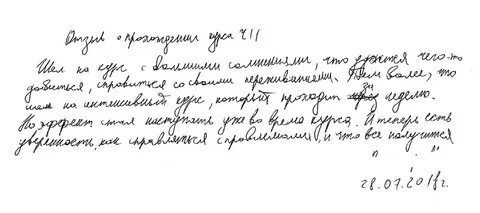 Отзыв о прохождении курса ЧII
Шел на курс с большими сомнениями, что удастся чего-то
добиться, справиться со своими переживаниями. Тем более, что
шел на интенсивный курс, который проходит за неделю.
Но эффект стал наступать уже во время курса. И теперь есть
уверенность, как справляться с проблемами, и что все получится
28.07.2018г.